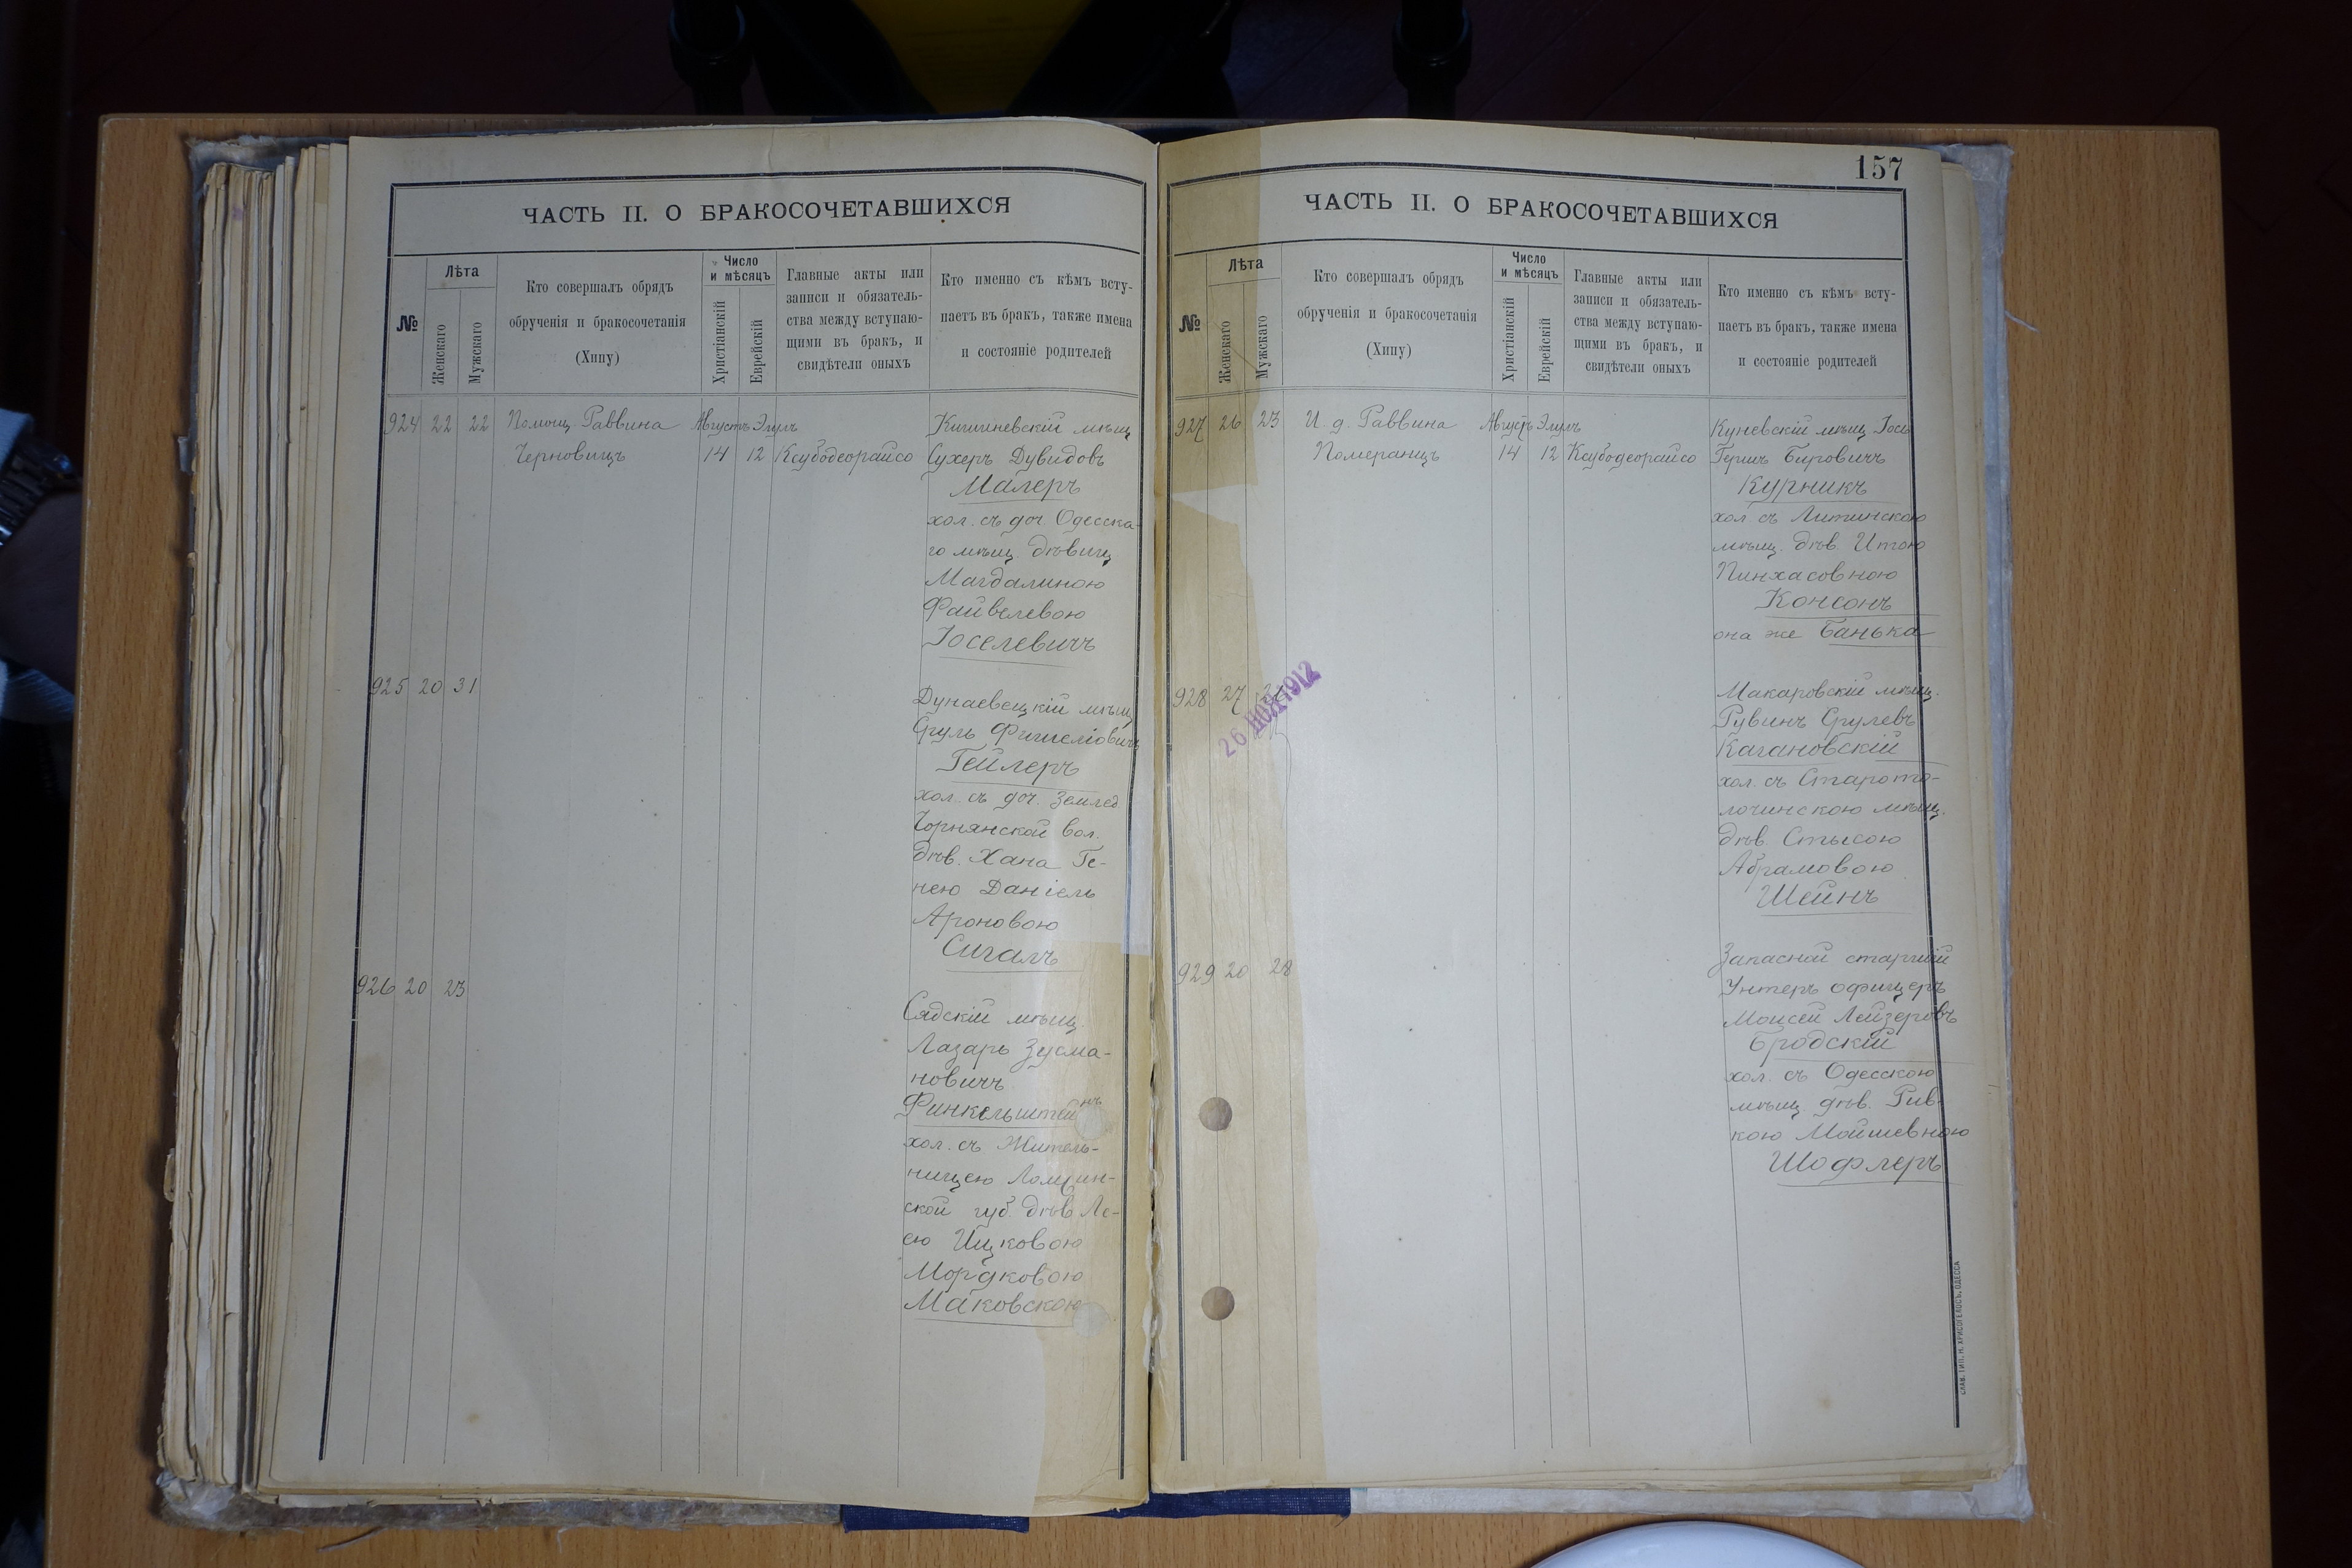 ЧАСТЬ II. О БРАКОСОЧЕТАВШИХСЯ
№
Лѣта
Женскаго
Мужскаго
Кто совершалъ обрядъ
обрученія и бракосочетанія
(Хипу)
Число
и мѣсяцъ
Христіанскій
Еврейскій
Главные акты или
записи и обязатель-
ства между вступаю-
щими въ бракъ, и
свидѣтели оныхъ
Кто именно съ кѣмъ всту-
паетъ въ бракъ, также имена
и состояніе родителей
924 22 22 Помощ Раввина Августъ Элулъ Кишиневскій мѣщ
Черновицъ 14 12 Ксубодеорайсо Сухеръ Дувидовъ
Малеръ
хол. съ доч. Одесска-
го мѣщ дѣвиц
Магдалиною
Файвелевою
Іоселевичъ
925 20 31
Дунаевецкій мѣщ
Сруль Фишеліовичъ
Гейлеръ
хол. съ доч. Землед
Чорнянской вол.
дѣв. Хана Ге-
нею Даніель
Ароновою
Сигалъ
926 20 23
Сядскій мѣщ.
Лазарь Зусма-
новичъ
Финкельштейнъ
хол. съ Житель-
ницею Ломжин-
ской губ. дѣв Ле-
ею Ицковою
Мордковою
Маковскою
157
ЧАСТЬ II. О БРАКОСОЧЕТАВШИХСЯ
№
Лѣта
Женскаго
Мужскаго
Кто совершалъ обрядъ
обрученія и бракосочетанія
(Хипу)
Число
и мѣсяцъ
Христіанскій
Еврейскій
Главные акты или
записи и обязатель-
ства между вступаю-
щими въ бракъ, и
свидѣтели оныхъ
Кто именно съ кѣмъ всту-
паетъ въ бракъ, также имена
и состояніе родителей
927 26 23 И. д. Раввина Августъ Элулъ Куневскій мѣщ Іось
Померанцъ 14 12 Ксубодеорайсо Гершъ Бировичъ
Курникъ
хол съ Литинскою
мѣщ. дѣв. Итою
Пинхасовною
Консонъ
она же Банька
928 27
26 НОЯ 1912
Макаровскій мѣщ.
Рувинъ Срулевъ
Кагановскій
хол. съ Старото-
лочинскою мѣщ.
дѣв. Стысою
Абрамовою
Шейнъ
929 20 28
Запасной старшій
Унтеръ офицеръ
Моисей Лейзеровъ
Бродскій
хол. съ Одесскою
мѣщ. дѣв. Рив-
кою Мойшевною
Шофлеръ
СЛАВ. ТИП. Н. ХРИСОГЕЛОСЪ, ОДЕССА